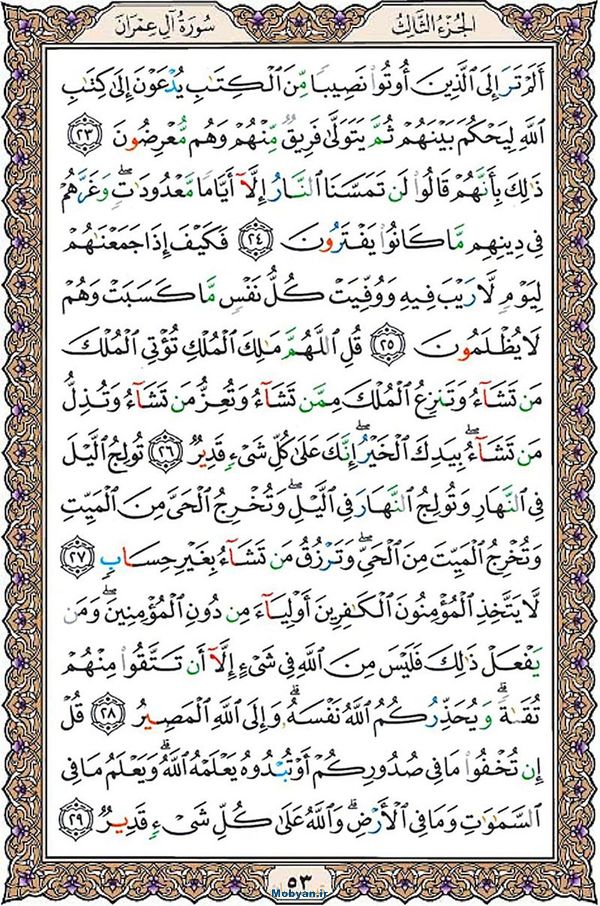 الجُزءُ الثَّالِثُ
سُورَةُ آلِ عِمْرَانَ
أَلَمْ تَرَ إِلَى الَّذِينَ أُوتُوا نَصِيبًا مِّنَ الْكِتَابِ يُدْعَوْنَ إِلَىٰ كِتَابِ
اللَّهِ لِيَحْكُمَ بَيْنَهُمْ ثُمَّ يَتَوَلَّىٰ فَرِيقٌ مِّنْهُمْ وَهُم مُّعْرِضُونَ ﴿٢٣﴾
ذَٰلِكَ بِأَنَّهُمْ قَالُوا لَن تَمَسَّنَا النَّارُ إِلَّآ أَيَّامًا مَّعْدُودَاتٍ ۖ وَغَرَّهُمْ
فِي دِينِهِم مَّا كَانُوا يَفْتَرُونَ ﴿٢٤﴾ فَكَيْفَ إِذَا جَمَعْنَاهُمْ
لِيَوْمٍ لَّا رَيْبَ فِيهِ وَوُفِّيَتْ كُلُّ نَفْسٍ مَّا كَسَبَتْ وَهُمْ
لَا يُظْلَمُونَ ﴿٢٥﴾ قُلِ اللَّهُمَّ مَالِكَ الْمُلْكِ تُؤْتِي الْمُلْكَ
مَن تَشَآءُ وَتَنزِعُ الْمُلْكَ مِمَّن تَشَآءُ وَتُعِزُّ مَن تَشَآءُ وَتُذِلُّ
مَن تَشَآءُ ۖ بِيَدِكَ الْخَيْرُ ۖ إِنَّكَ عَلَىٰ كُلِّ شَيْءٍ قَدِيرٌ ﴿٢٦﴾ تُولِجُ الَّيْلَ
فِي النَّهَارِ وَتُولِجُ النَّهَارَ فِي الَّيْلِ ۖ وَتُخْرِجُ الْحَيَّ مِنَ الْمَيِّتِ
وَتُخْرِجُ الْمَيِّتَ مِنَ الْحَيِّ ۖ وَتَرْزُقُ مَن تَشَآءُ بِغَيْرِ حِسَابٍ ﴿٢٧﴾
لَّا يَتَّخِذِ الْمُؤْمِنُونَ الْكَافِرِينَ أَوْلِيَآءَ مِن دُونِ الْمُؤْمِنِينَ ۖ وَمَن
يَفْعَلْ ذَٰلِكَ فَلَيْسَ مِنَ اللَّهِ فِي شَيْءٍ إِلَّآ أَن تَتَّقُوا مِنْهُمْ
تُقَاةً ۗ وَيُحَذِّرُكُمُ اللَّهُ نَفْسَهُ ۗ وَإِلَى اللَّهِ الْمَصِيرُ ﴿٢٨﴾ قُلْ
إِن تُخْفُوا مَا فِي صُدُورِكُمْ أَوْ تُبْدُوهُ يَعْلَمْهُ اللَّهُ ۗ وَيَعْلَمُ مَا فِي
السَّمَاوَاتِ وَمَا فِي الْأَرْضِ ۗ وَاللَّهُ عَلَىٰ كُلِّ شَيْءٍ قَدِيرٌ ﴿٢٩﴾
٥٣
Mobyan.ir